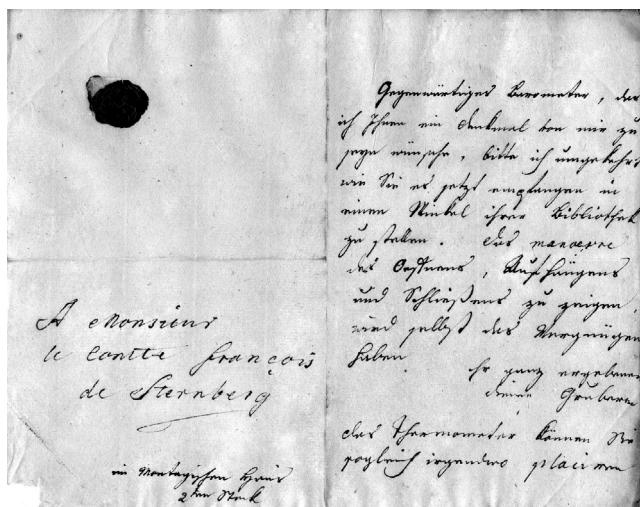 A Monsieur
le Comtte François
de Sternberg
im Montagischen Haus
2ten Stock
Gegenwärtiges Barometer, das
ich Ihnen ein Denkmal von mir zu
seyn wünsche, bitte ich umgekehrt
wie Sie es jetzt empfangen in
einen Winkel ihrer Bibliothek
zu stellen. Das manoevre
des Oeffnens, Aufhängens
und Schließens zu zeigen,
wird selbst das Vergnügen
haben
Ihr ganz ergebener
Diener
das Thermometer können Sie
sogleich irgendwo placiren